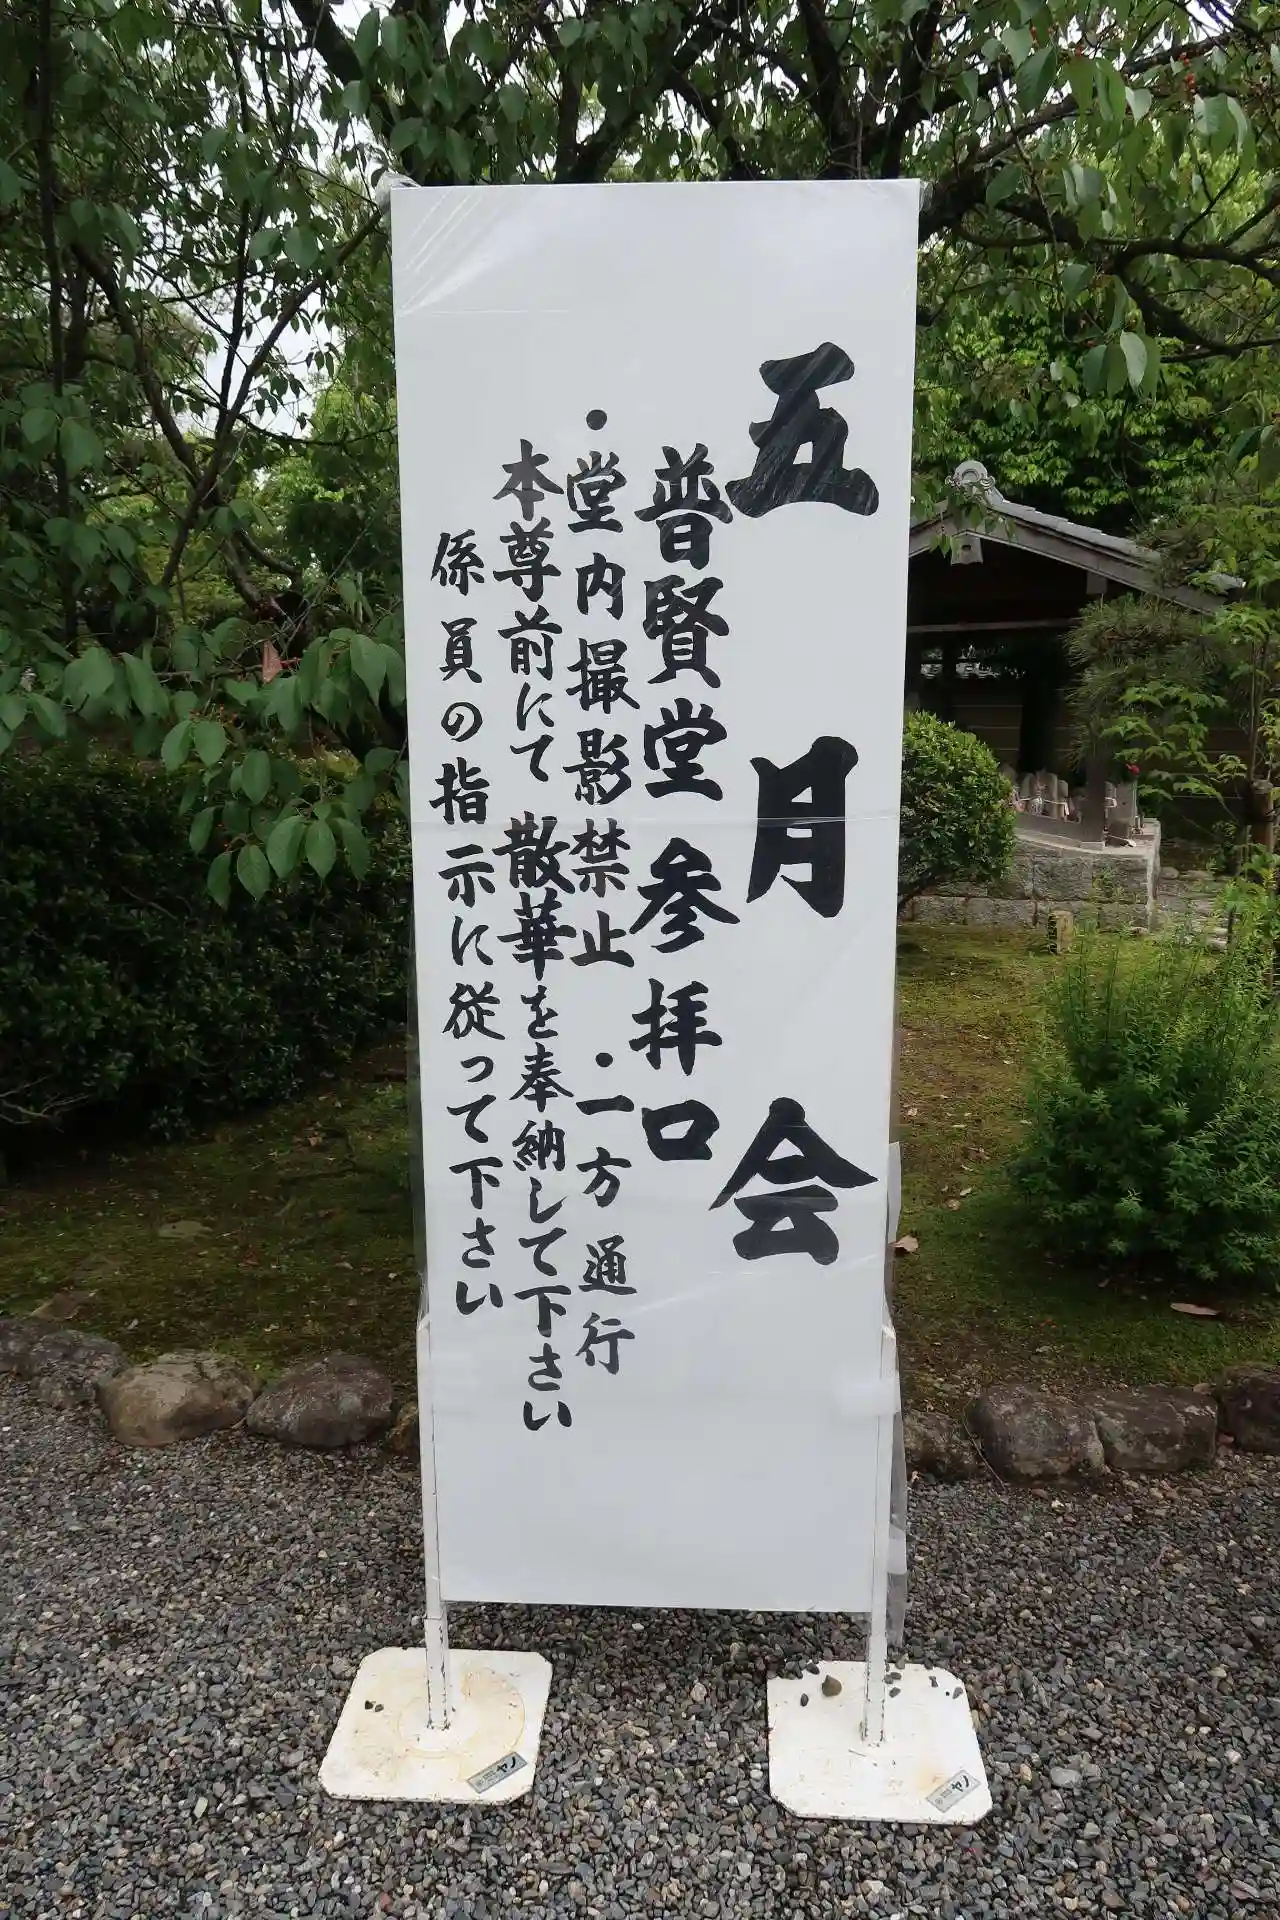 五月会
普賢堂参拝口
・堂内撮影禁止 ・一方通行
本尊前にて散華を奉納して下さい
係員の指示に従って下さい